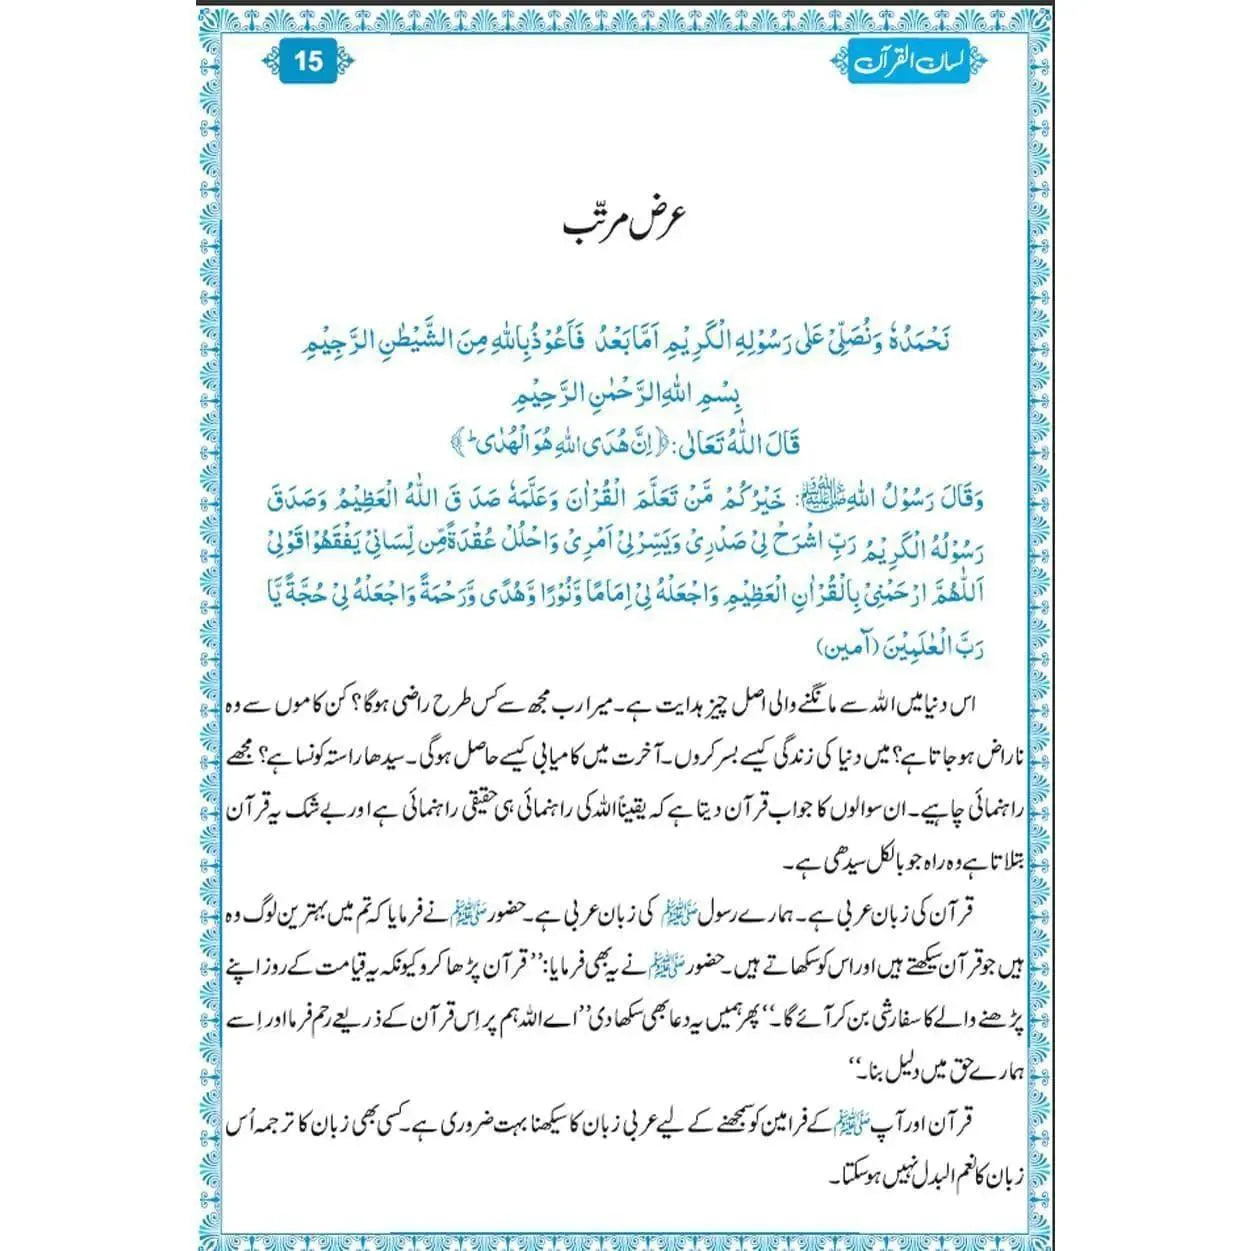 لسان القرآن
15
عرض مرتّب
نَحْمَدُہٗ وَنُصَلِّیْ عَلٰی رَسُوْلِہِ الْکَرِیْمِ اَمَّا بَعْدُ فَاَعُوْذُ بِاللّٰہِ مِنَ الشَّیْطٰنِ الرَّجِیْمِ
بِسْمِ اللّٰہِ الرَّحْمٰنِ الرَّحِیْمِ
قَالَ اللّٰہُ تَعَالٰی: ﴿اِنَّ ھُدَی اللّٰہِ ھُوَ الْھُدٰی ؕ﴾
وَقَالَ رَسُوْلُ اللّٰہِ ﷺ: خَیْرُکُمْ مَّنْ تَعَلَّمَ الْقُرْاٰنَ وَعَلَّمَہٗ صَدَ قَ اللّٰہُ الْعَظِیْمُ وَصَدَقَ
رَسُوْلُہُ الْکَرِیْمُ رَبِّ اشْرَحْ لِیْ صَدْرِیْ وَیَسِّرْلِیْ اَمْرِیْ وَاحْلُلْ عُقْدَۃً مِّن لِّسَانِیْ یَفْقَھُوْا قَوْلِیْ
اَللّٰھُمَّ ارْحَمْنِیْ بِالْقُرْاٰنِ الْعَظِیْمِ وَاجْعَلْہُ لِیْ اِمَامًا وَّنُوْرًا وَّھُدًی وَّرَحْمَۃً وَاجْعَلْہُ لِیْ حُجَّۃً یَّا
رَبَّ الْعٰلَمِیْنَ (آمین)
اس دنیا میں اللہ سے مانگنے والی اصل چیز ہدایت ہے۔ میرا رب مجھ سے کس طرح راضی ہوگا؟ کن کاموں سے وہ
ناراض ہو جاتا ہے؟ میں دنیا کی زندگی کیسے بسر کروں۔ آخرت میں کامیابی کیسے حاصل ہوگی۔ سیدھا راستہ کونسا ہے؟ مجھے
راہنمائی چاہیے۔ ان سوالوں کا جواب قرآن دیتا ہے کہ یقیناً اللہ کی راہنمائی ہی حقیقی راہنمائی ہے اور بے شک یہ قرآن
بتلاتا ہے وہ راہ جو بالکل سیدھی ہے۔
قرآن کی زبان عربی ہے۔ ہمارے رسول ﷺ کی زبان عربی ہے۔ حضور ﷺ نے فرمایا کہ تم میں بہترین لوگ وہ
ہیں جو قرآن سیکھتے ہیں اور اس کو سکھاتے ہیں۔ حضور ﷺ نے یہ بھی فرمایا: ’’قرآن پڑھا کرو کیونکہ یہ قیامت کے روز اپنے
پڑھنے والے کا سفارشی بن کر آئے گا۔‘‘ پھر ہمیں یہ دعا بھی سکھا دی ’’اے اللہ ہم پر اِس قرآن کے ذریعے رحم فرما اور اِسے
ہمارے حق میں دلیل بنا۔‘‘
قرآن اور آپ ﷺ کے فرامین کو سمجھنے کے لیے عربی زبان کا سیکھنا بہت ضروری ہے۔ کسی بھی زبان کا ترجمہ اُس
زبان کا نعم البدل نہیں ہو سکتا۔